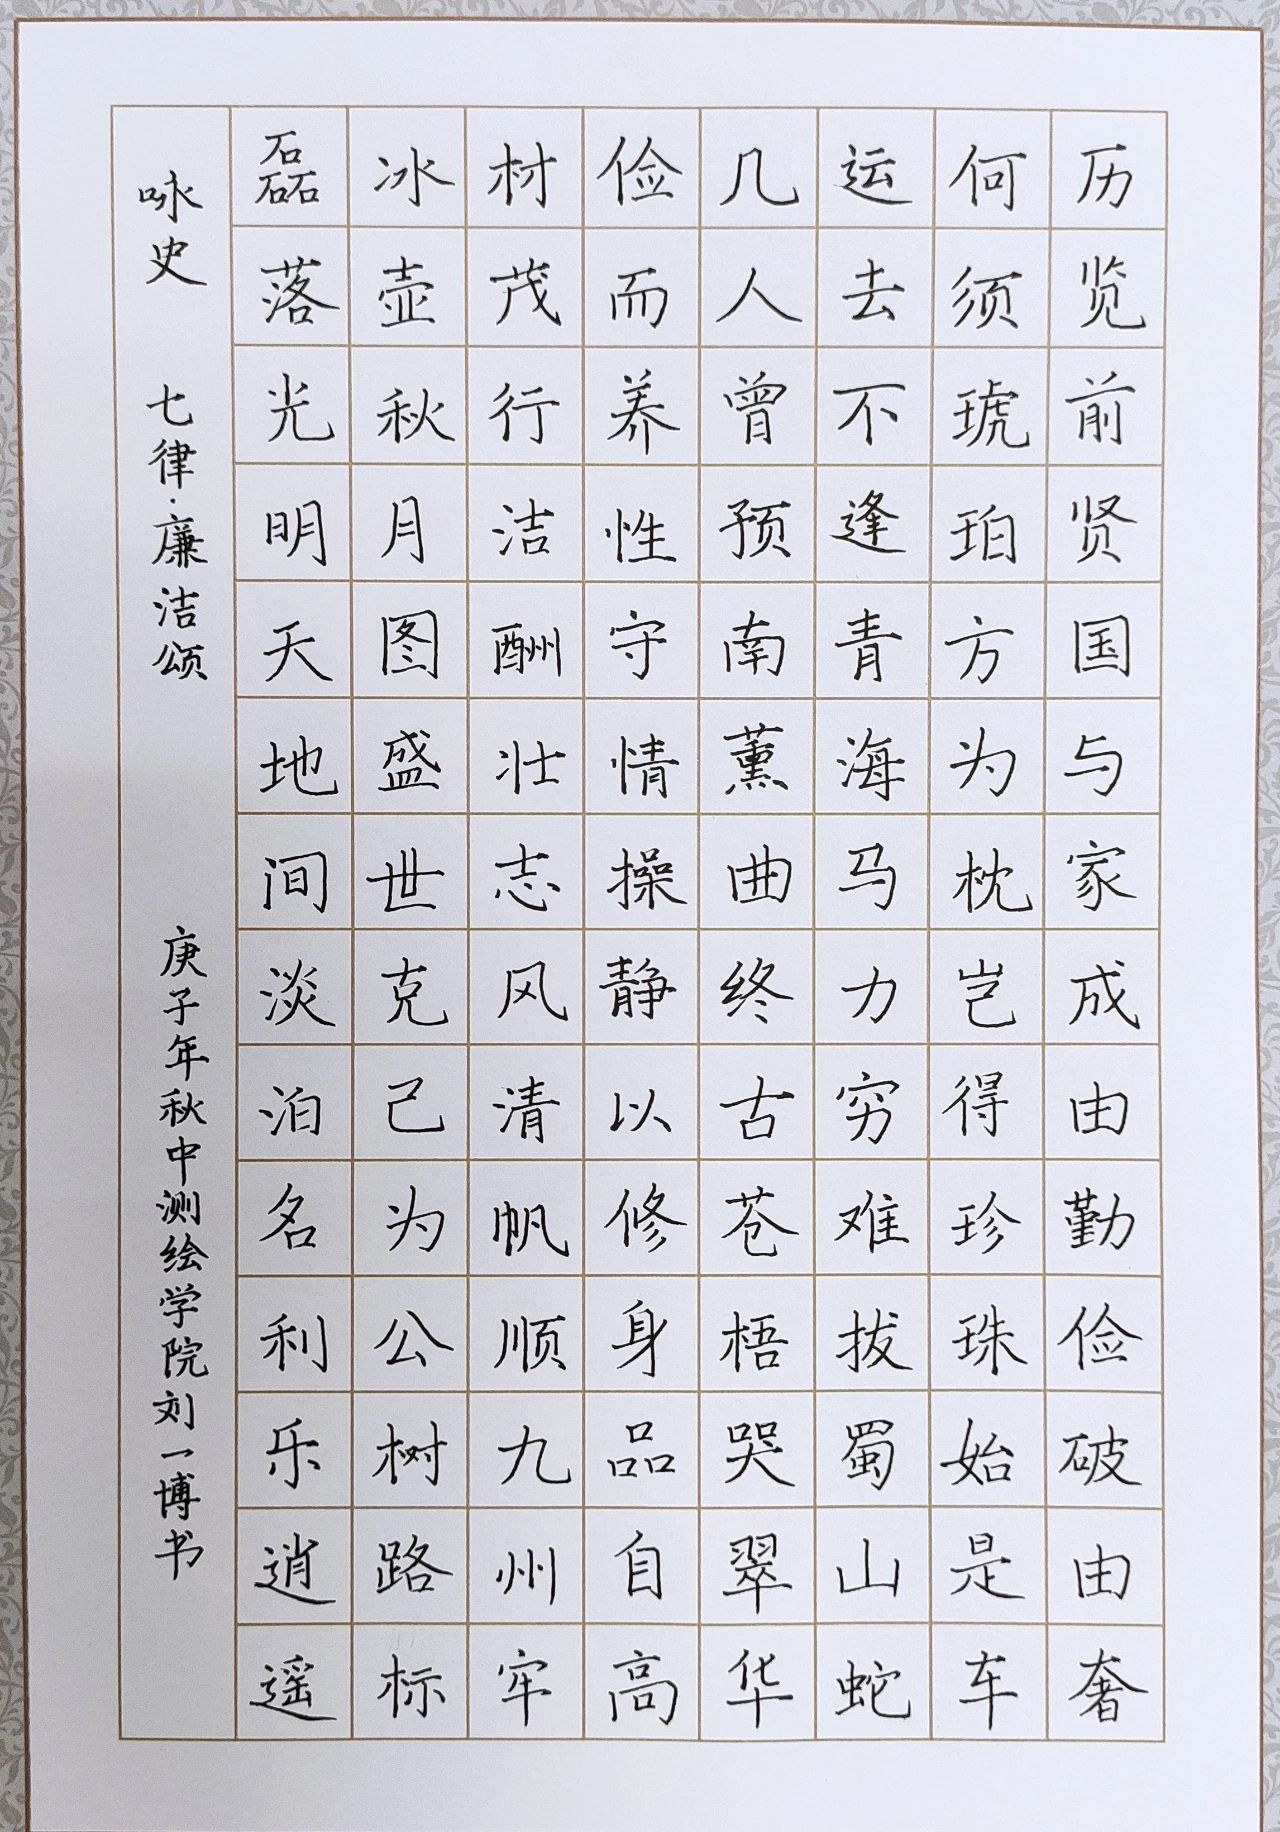 历览前贤国与家成由勤俭破由奢
何须琥珀方为枕岂得珍珠始是车
运去不逢青海马力穷难拔蜀山蛇
几人曾预南薰曲终古苍梧哭翠华
俭而养性守情操静以修身品自高
材茂行洁酬壮志风清帆顺九州牢
冰壶秋月图盛世克己为公树路标
磊落光明天地间淡泊名利乐逍遥
咏史 七律·廉洁颂 庚子年秋中测绘学院刘一博书